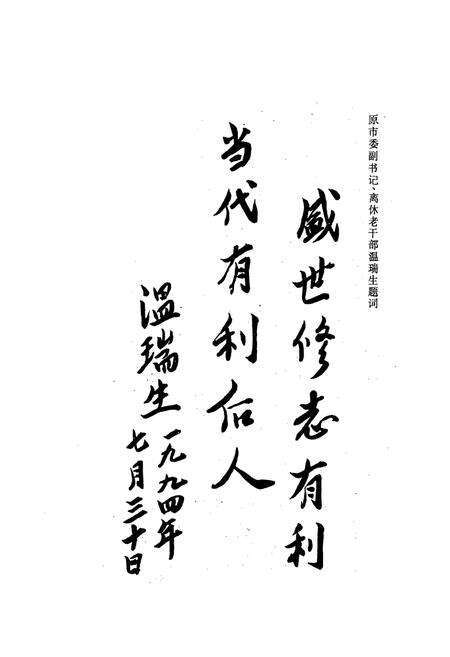 原市委副书记、离休老干部温瑞生题词
盛世修志有利
当代有利后人
温瑞生一九九四年
七月三十日